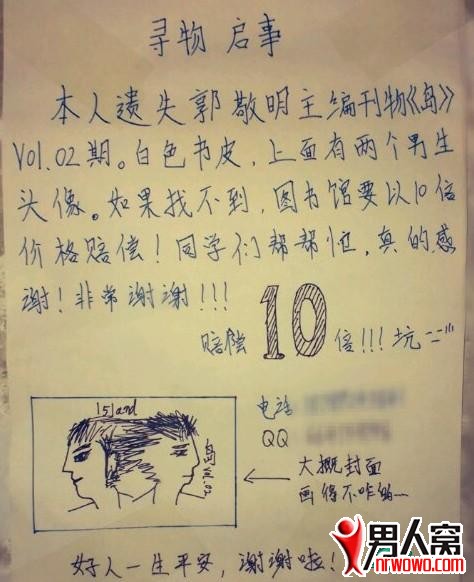 寻物 启事
本人遗失郭敬明主编刊物《岛》
Vol.02期。白色书皮,上面有两个男生
头像。如果找不到,图书馆要以10倍
价格赔偿!同学们帮帮忙,真的感
谢!非常谢谢!!!
赔偿10倍!!!坑
电话
QQ
island
岛
vol.02
大概封面
画得不咋的…
好人一生平安,谢谢啦!
男人窝
nrwowo.com